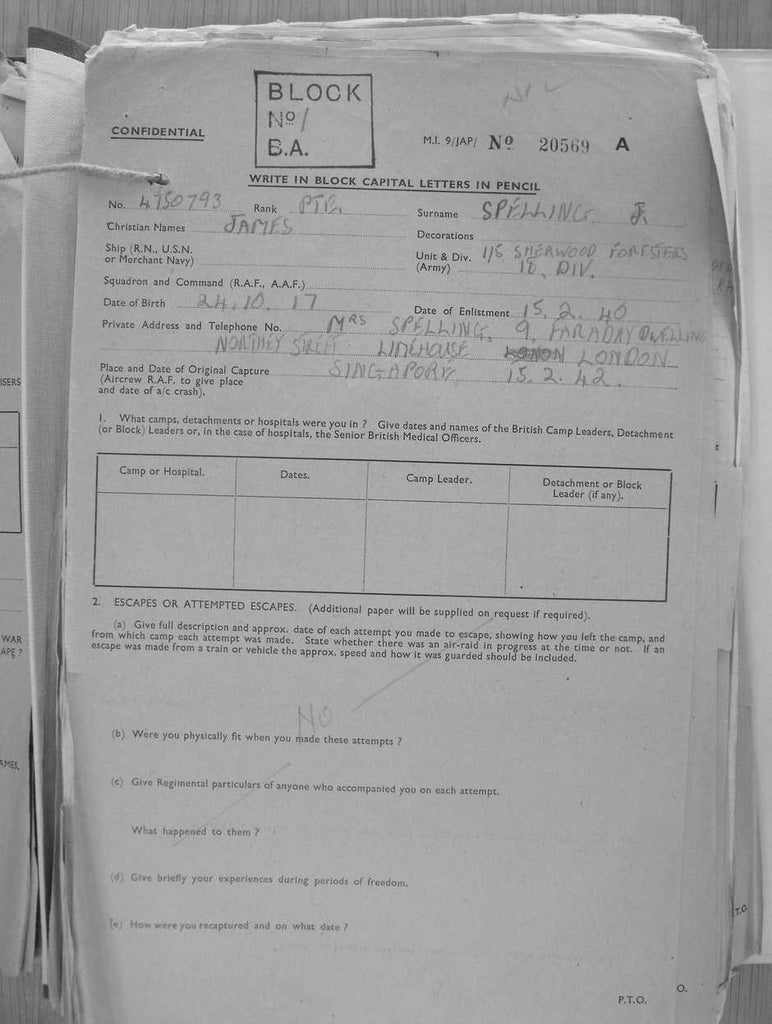 BLOCK
Nº 1
B.A.
NIL
CONFIDENTIAL
M.I. 9/JAP/ Nº 20569 A
WRITE IN BLOCK CAPITAL LETTERS IN PENCIL
No. 4750793 Rank PTE. Surname SPELLING J.
Christian Names JAMES Decorations
Ship (R.N., U.S.N. or Merchant Navy) Unit & Div. (Army) 1/5 SHERWOOD FORESTERS
18. DIV.
Squadron and Command (R.A.F., A.A.F.)
Date of Birth 24.10.17 Date of Enlistment 15.2.40
Private Address and Telephone No. MRS SPELLING, 9, FARADAY DWELLING
NORTHEY STREET LIMEHOUSE LONDON
Place and Date of Original Capture SINGAPORE, 15.2.42.
(Aircrew R.A.F. to give place
and date of a/c crash).
1. What camps, detachments or hospitals were you in ? Give dates and names of the British Camp Leaders, Detachment
(or Block) Leaders or, in the case of hospitals, the Senior British Medical Officers.
Camp or Hospital. Dates. Camp Leader. Detachment or Block
Leader (if any).
2. ESCAPES OR ATTEMPTED ESCAPES. (Additional paper will be supplied on request if required).
(a) Give full description and approx. date of each attempt you made to escape, showing how you left the camp, and
from which camp each attempt was made. State whether there was an air-raid in progress at the time or not. If an
escape was made from a train or vehicle the approx. speed and how it was guarded should be included.
NO
(b) Were you physically fit when you made these attempts ?
(c) Give Regimental particulars of anyone who accompanied you on each attempt.
What happened to them ?
(d) Give briefly your experiences during periods of freedom.
(e) How were you recaptured and on what date ?
P.T.O.
O.
ISERS
WAR
APE ?
AMES,
T.O.